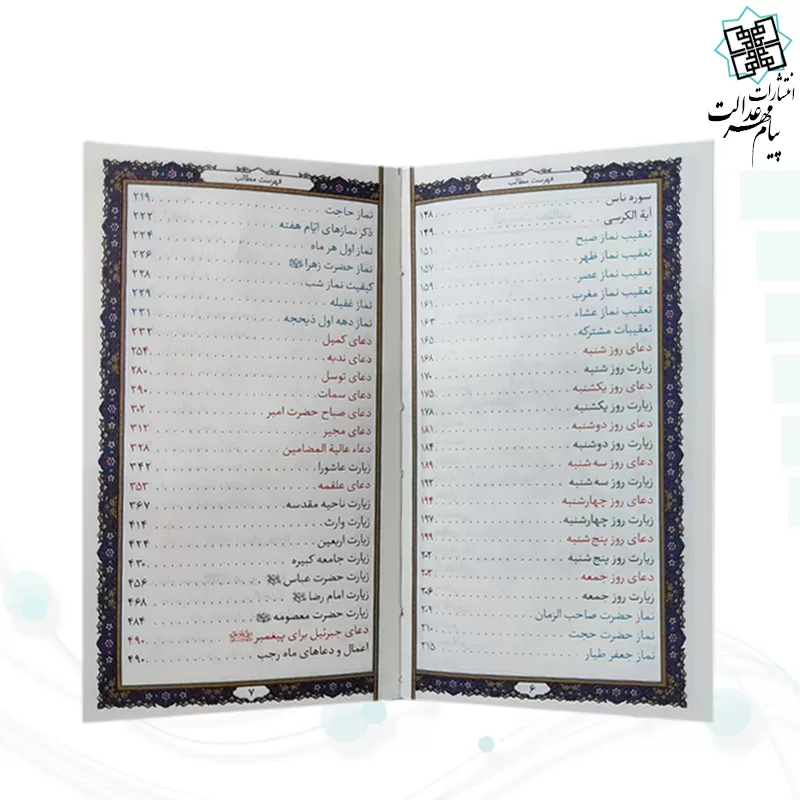 انتشارات
پیام مهر عدالت
فهرست مطالب
سوره ناس ۱۴۸
آیة الکرسی ۱۴۹
تعقیب نماز صبح ۱۵۱
تعقیب نماز ظهر ۱۵۷
تعقیب نماز عصر ۱۵۹
تعقیب نماز مغرب ۱۶۱
تعقیب نماز عشاء ۱۶۳
تعقیبات مشترکه ۱۶۵
دعای روز شنبه ۱۶۸
زیارت روز شنبه ۱۷۰
دعای روز یکشنبه ۱۷۵
زیارت روز یکشنبه ۱۷۸
دعای روز دوشنبه ۱۸۱
زیارت روز دوشنبه ۱۸۴
دعای روز سه‌شنبه ۱۸۹
زیارت روز سه‌شنبه ۱۹۲
دعای روز چهارشنبه ۱۹۴
زیارت روز چهارشنبه ۱۹۷
دعای روز پنج‌شنبه ۱۹۹
زیارت روز پنج‌شنبه ۲۰۲
دعای روز جمعه ۲۰۳
زیارت روز جمعه ۲۰۶
نماز حضرت صاحب الزمان ۲۰۹
نماز حضرت حجت ۲۱۰
نماز جعفر طیار ۲۱۵
۶
فهرست مطالب
نماز حاجت ۲۱۹
ذکر نمازهای ایّام هفته ۲۲۲
نماز اول هر ماه ۲۲۴
نماز حضرت زهرا ۲۲۶
کیفیت نماز شب ۲۲۸
نماز غفیله ۲۲۹
نماز دهه اول ذیحجه ۲۳۱
دعای کمیل ۲۳۲
دعای ندبه ۲۵۴
دعای توسل ۲۸۰
دعای سمات ۲۹۰
دعای صباح حضرت امیر ۳۰۲
دعای مجیر ۳۱۲
دعاء عالیة المضامین ۳۲۸
زیارت عاشورا ۳۴۲
دعای علقمه ۳۵۳
زیارت ناحیه مقدسه ۳۶۷
زیارت وارث ۴۱۴
زیارت اربعین ۴۲۴
زیارت جامعه کبیره ۴۳۰
زیارت حضرت عباس ۴۵۶
زیارت امام رضا ۴۶۸
زیارت حضرت معصومه ۴۸۴
دعای جبرئیل برای پیغمبر ۴۹۰
اعمال و دعاهای ماه رجب ۴۹۰
۷